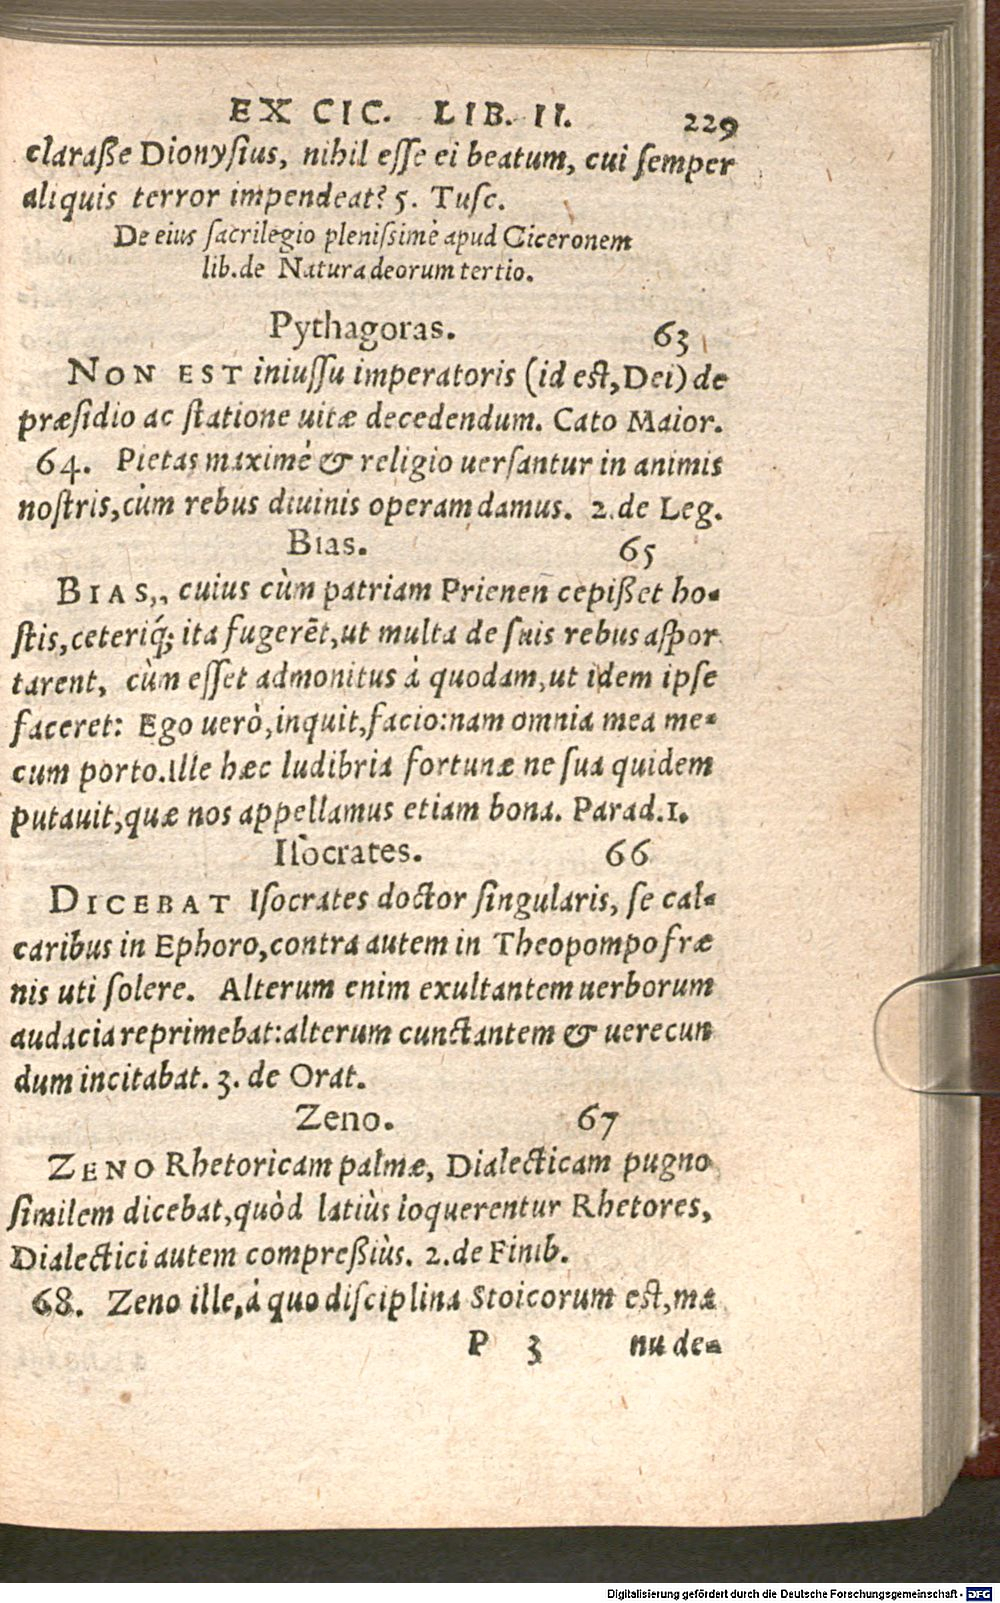 EX CIC. LIB. II. 229
claraſſe Dionyſius, nihil eſſe ei beatum, cui ſemper
aliquis terror impendeat? 5. Tuſc.
De eius ſacrilegio pleniſsimè apud Ciceronem
lib. de Natura deorum tertio.
Pythagoras. 63
NON EST iniuſſu imperatoris (id eſt, Dei) de
præſidio ac ſtatione uitæ decedendum. Cato Maior.
64. Pietas maximè & religio uerſantur in animis
noſtris, cùm rebus diuinis operam damus. 2. de Leg.
Bias. 65
BIAS, cuius cùm patriam Prienen cepißet ho-
ſtis, ceteriq́; ita fugerēt, ut multa de ſuis rebus aſpor
tarent, cùm eſſet admonitus à quodam, ut idem ipſe
faceret: Ego uerò, inquit, facio: nam omnia mea me-
cum porto. Ille hæc ludibria fortunæ ne ſua quidem
putauit, quæ nos appellamus etiam bona. Parad. 1.
Iſocrates. 66
DICEBAT Iſocrates doctor ſingularis, ſe cal-
caribus in Ephoro, contra autem in Theopompo fræ
nis uti ſolere. Alterum enim exultantem uerborum
audacia reprimebat: alterum cunctantem & uerecun
dum incitabat. 3. de Orat.
Zeno. 67
ZENO Rhetoricam palmæ, Dialecticam pugno
ſimilem dicebat, quòd latiùs loquerentur Rhetores,
Dialectici autem compreßiùs. 2. de Finib.
68. Zeno ille, à quo diſciplina Stoicorum eſt, ma
P 3 nu de-
Digitalisierung gefördert durch die Deutsche Forschungsgemeinschaft - DFG